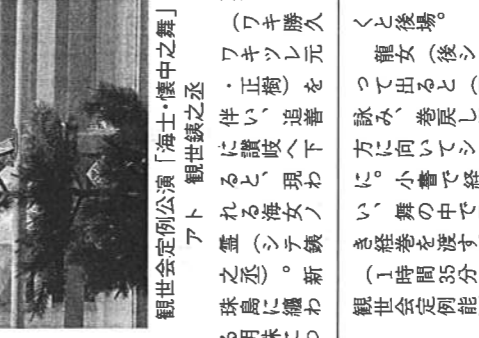 観世会定例公演「海士・懐中之舞」
アト 観世銕之丞
（ワキ勝久
ワキツレ元
・正樹）を
伴い、追善
に讃岐へ下
ると、現わ
れる海女ノ
霊（シテ銕
之丞）。新
珠島に纏わ
る明珠につ
くと後場。
龍女（後シ
って出ると（
詠み、巻戻し
方に向いてシ
に。小書で経
い、舞の中で
き経巻を渡す
（1時間35分
観世会定例能